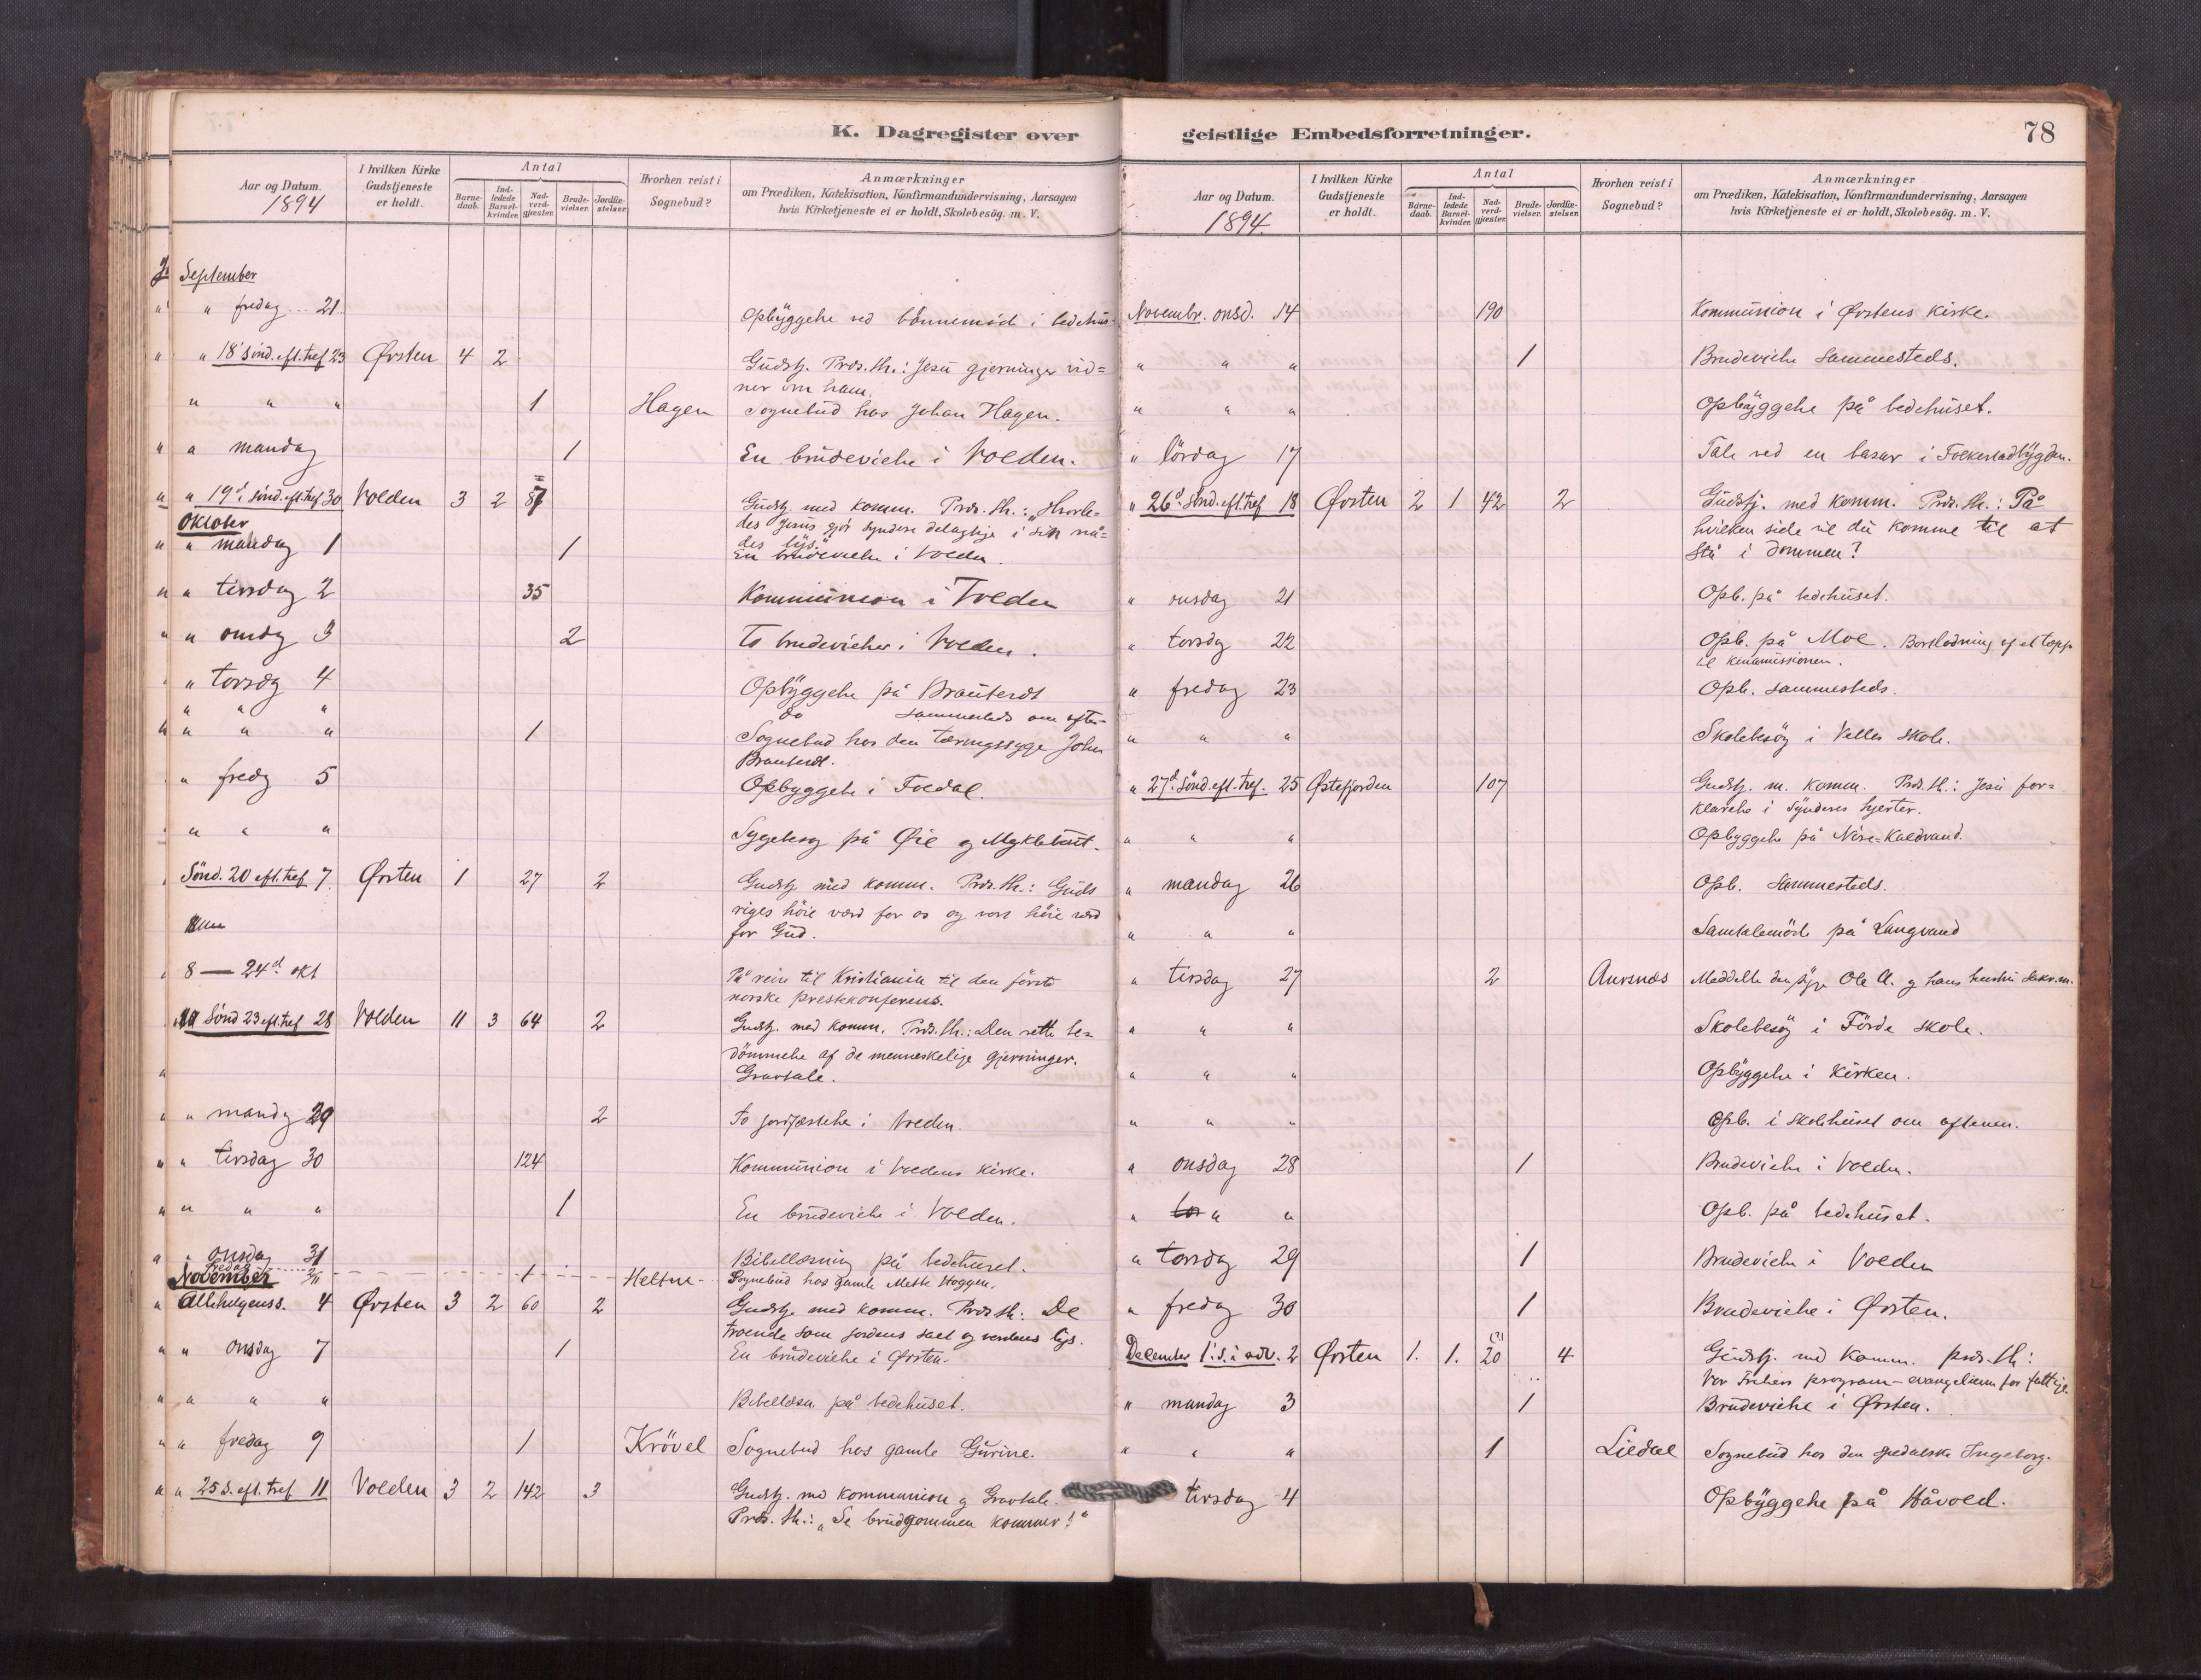 K. Dagregister over
Aar og Datum.
1894
I hvilken Kirke Gudstjeneste er holdt.
Antal
Barne-daab.
Ind-ledede Barsel-kvinder.
Nad-verd-gjester.
Brude-vielser.
Jordfæ-stelser.
Hvorhen reist i Sognebud?
Anmærkninger
om Prædiken, Katekisation, Konfirmandundervisning, Aarsagen
hvis Kirketjeneste ei er holdt, Skolebesög. m. V.
September
" fredag 21 Opbyggelse ved bönnemöde i bedehus
" 18' sönd. eft. tref 23 Ørsten 4 2 Gudstj. Præs. th.: Jesu gjerninger vid=
ner om ham.
" " " 1 Hagen Sognebud hos Johan Hagen.
" mandag 1 En brudevielse i Volden.
" 19d. sönd. eft. tref 30 Volden 3 2 87 Gudstj. med komm. Præs. th.: "Hvorle=
des Jesus gjör syndere delagtige i sin nå=
des lys."
Oktober
" mandag 1 1 En brudevielse i Volden.
" tirsdag 2 35 Kommunion i Volden
" onsdg 3 2 To brudevielser i Volden.
" torsdg 4 Opbyggelse på Brautesæt
" " " do sammesteds om aften-
" " " 1 Sognebud hos den tæringssyge John
Brautesæt.
" fredg 5 Opbyggelse i Foldal.
" " " Sygebesög på Øie og Myklebust.
Sönd. 20 eft. tref 7 Ørsten 1 27 2 Gudstj med komm. Præs. th.: Guds
riges höie værd for os og vort höie værd
for Gud.
8 — 24d okt På reise til Kristiania til den förste
norske prestekonferens.
Sönd 23 eft. tref 28 Volden 11 3 64 2 Gudstj. med komm. Præs. th.: Den rette be=
dömmelse af de menneskelige gjerninger.
Gravtale.
" mandg 29 2 To jordfæstelse i Volden.
" tirsdag 30 124 Kommunion i Voldens kirke.
" " " 1 En brudevielse i Volden.
" onsdag 31 Bibellæsning på bedehuset.
November fredag 2/11 1 Heltne Sognebud hos gamle Mette Hoggen.
Allehelgenss. 4 Ørsten 3 2 60 2 Gudstj. med komm. Præs th: De
troende som jordens salt og verdens lys.
" onsdag 7 1 En brudevielse i Ørsten.
" " " Bibellæsn. på bedehuset.
" fredag 9 1 Krövel Sognebud hos gamle Gurine.
" 25 s. eft. tref 11 Volden 3 2 142 3 Gudstj. med kommunion og Gravtale.
Præs. th.: "Se brudgommen kommer!"
geistlige Embedsforretninger.
78
Aar og Datum.
1894.
I hvilken Kirke Gudstjeneste er holdt.
Antal
Barne-daab.
Ind-ledede Barsel-kvinder.
Nad-verd-gjester.
Brude-vielser.
Jordfæ-stelser.
Hvorhen reist i Sognebud?
Anmærkninger
om Prædiken, Katekisation, Konfirmandundervisning, Aarsagen
hvis Kirketjeneste ei er holdt, Skolebesög. m. V.
Novembr. onsd. 14 190 Kommunion i Ørstens kirke.
" " " 1 Brudevielse sammesteds.
" " " Opbyggelse på bedehuset.
" lördag 17 Tale ved en basar i Folkestadbygden.
" 26d. sönd. eft. tref 18 Ørsten 2 1 42 2 Gudstj. med komm. Præs. th.: På
hvilken side vil du komme til at
stå i dommen?
" onsdag 21 Opb. på bedehuset.
" torsdg 22 Opb. på Moe. Bortlodning af et tæppe
til kinamissionen.
" fredag 23 Opb. sammesteds.
" " " Skolebesög i Velle skole.
" 27d. Sönd. eft. tref. 25 Østefjorden 107 Gudstj. m. komm. Præs. th.: Jesu for=
klarelse i synderes hjerter.
" " " Opbyggelse på Nere=Kaldvand.
" mandag 26 Opb. sammesteds.
" " " Samtalemöde på Langvand
" tirsdag 27 2 Aursnes Meddelte den syge Ole A. og hans hustru sakr.m.
" " " Skolebesög i Förde skole.
" " " Opbyggelse i kirken.
" " " Opb. i skolehuset om aftenen.
" onsdag 28 1 Brudevielse i Volden.
" " " Opb. på bedehuset.
" torsdg 29 1 Brudevielse i Volden
" fredag 30 1 Brudevielse i Ørsten.
December 1'. s. i adv. 2 Ørsten 1. 1. 20 4 Gudstj. med Komm. præs. th:
Vor Frelsers program - evangelium for fattige.
" mandag 3 1 Brudevielse i Ørsten.
" " " 1 Liedal Sognebud hos den spedalske Ingeborg.
tirsdag 4 Opbyggelse på Håvold.